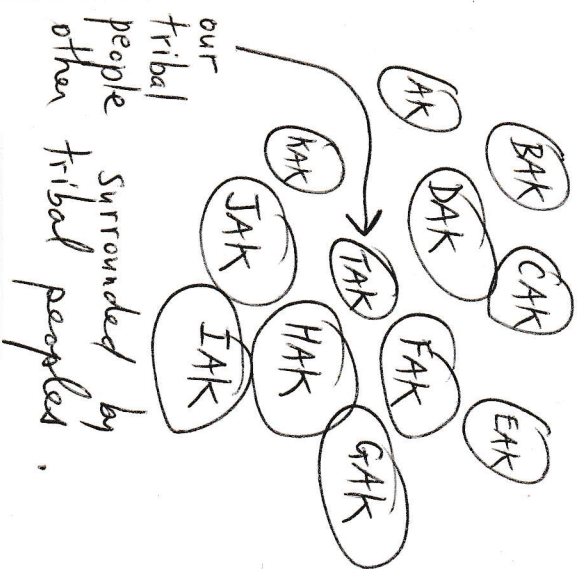 our
tribal
people
surrounded by
other tribal peoples.
AK
BAK
CAK
DAK
EAK
FAK
GAK
HAK
IAK
JAK
KAK
TAK